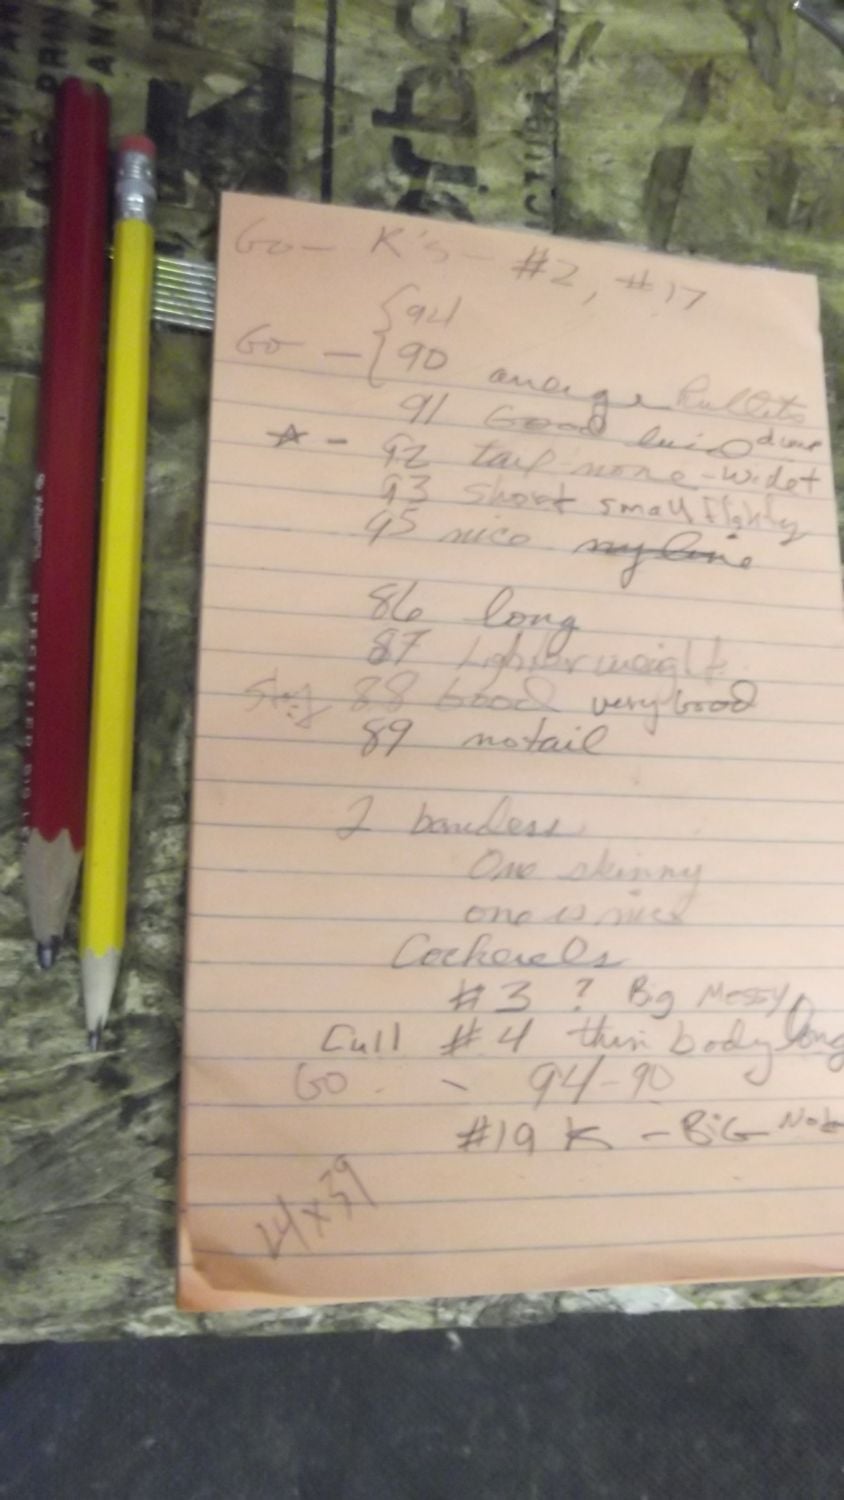 Go - K's - #2, #17
94
Go - 90 average Pullets
91 Good
92 tail none - widet
93 short small flighty
95 nice
86 long
87 Lighter weight
88 Good very Good
89 no tail
2 bandless
One skinny
one is nice
Cockerels
#3 ? Big Messy
Cull #4 thin body long
GO - 94-90
#19 K - BiG
24x39